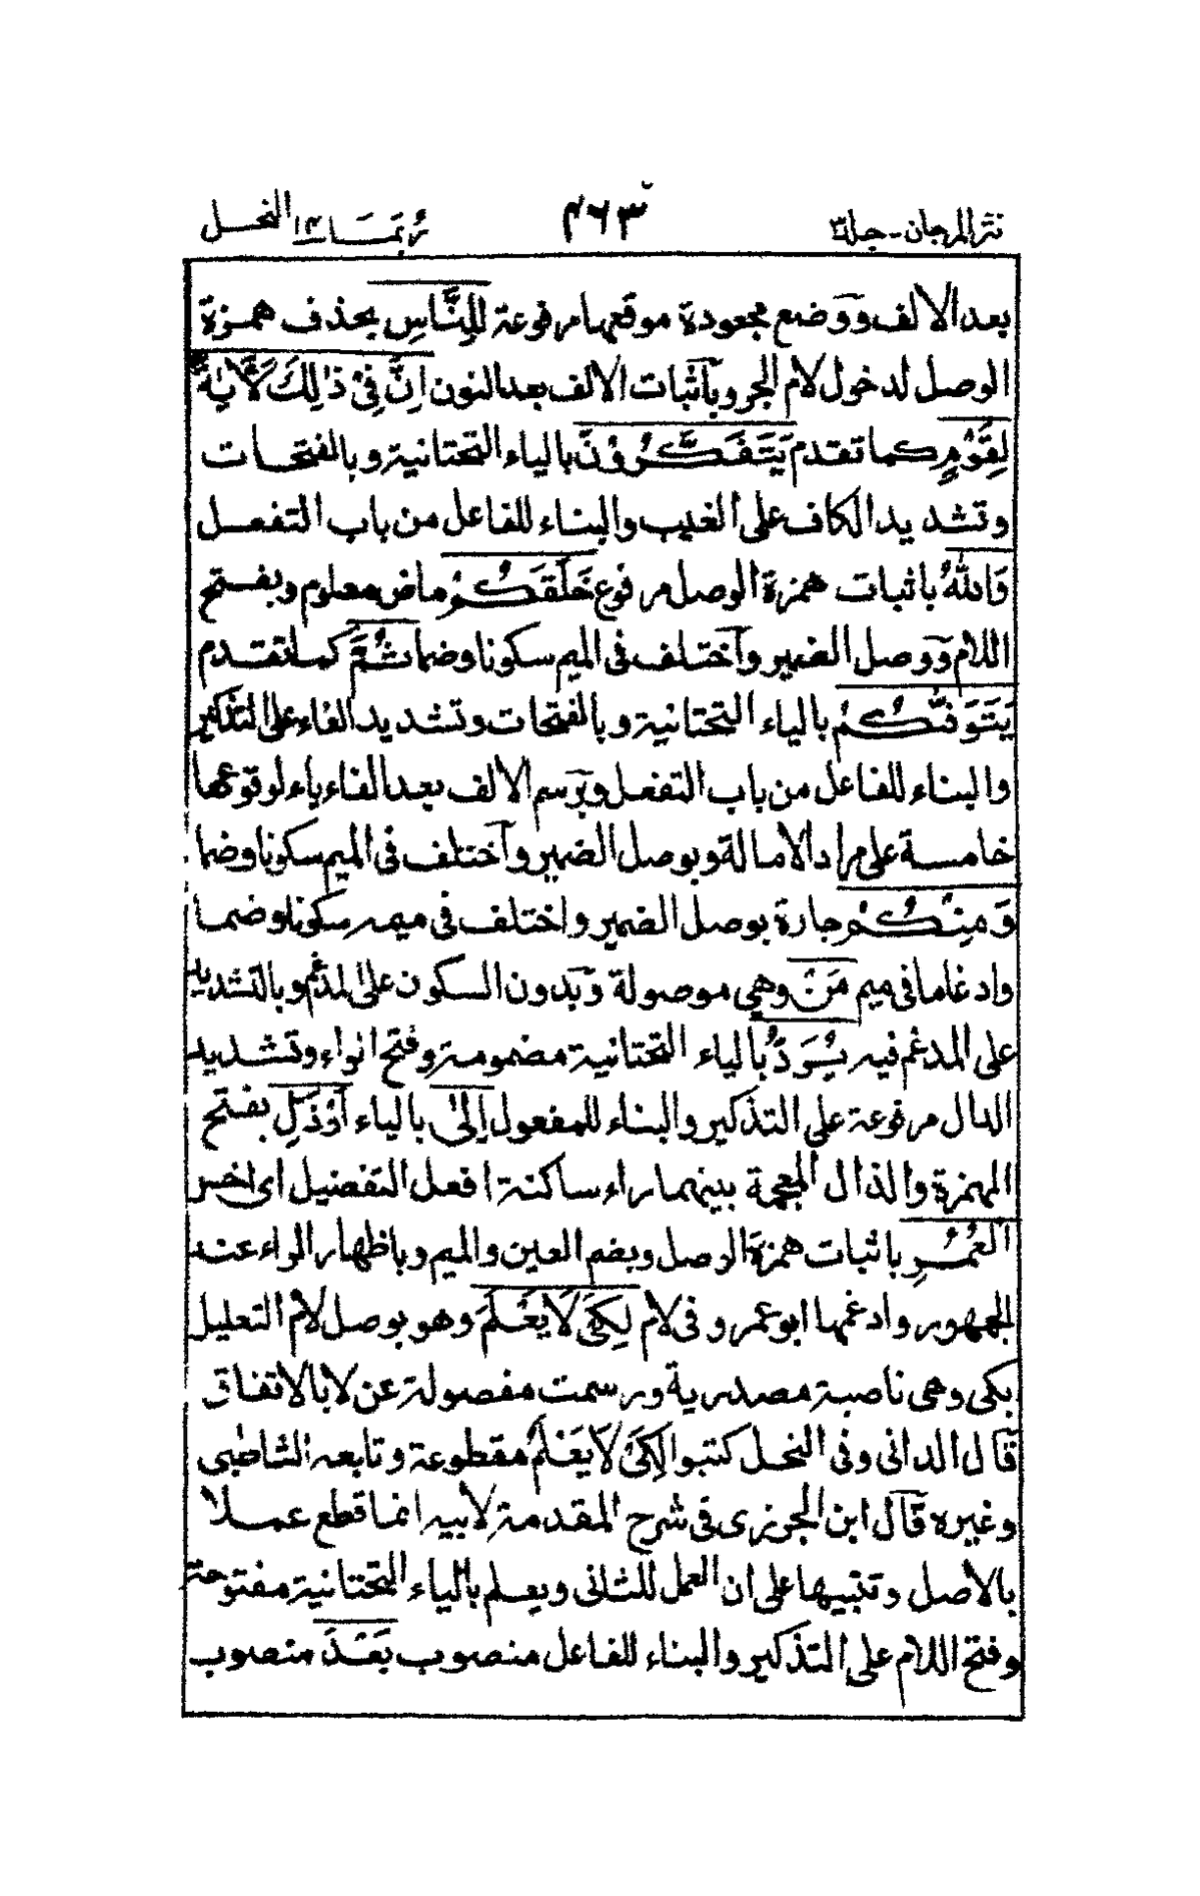 نثر المرجان - جلد ٣
٤٦٣
ربما ١٤ النحل
بعد الالف ووضع مجعودة موقعها مرفوعة لِلنَّاسِ بحذف همزة
الوصل لدخول لام الجر وبآثبات الالف بعد النون اِنَّ فِیْ ذٰلِكَ لَاٰیَةً
لِقَوْمٍ كما تقدم يَتَفَكَّرُوْنَ بالياء التحتانية وبالفتحات
وتشديد الكاف على الغيب والبناء للفاعل من باب التفعل
وَاللّٰهُ باثبات همزة الوصل مرفوع خَلَقَكُمْ ماض معلوم وبفتح
اللام ووصل الضمير وآختلف فى الميم سكونا وضما ثُمَّ كما تقدم
يَتَوَفّٰىكُمْ بالياء التحتانية وبالفتحات وتشديد الفاء على التذكير
والبناء للفاعل من باب التفعل وبرسم الالف بعد الفاء ياء لوقوعها
خامسة على مراد الامالة وبوصل الضمير وآختلف فى الميم سكونا وضما
وَمِنْكُمْ جارة بوصل الضمير واختلف فى ميمه سكونا وضما
وادغاما فى ميم مَنْ وهى موصولة وبدون السكون على المدغم وبالتشديد
على المدغم فيه يُّرَدُّ بالياء التحتانية مضمومة وفتح الراء وتشديد
الدال مرفوعة على التذكير والبناء للمفعول اِلٰى بالياء اَرْذَلِ بفتح
الهمزة والذال المعجمة بينهما راء ساكنة افعل التفضيل اى اخس
الْعُمُرِ باثبات همزة الوصل وبضم العين والميم وباظهار الراء عند
الجمهور وادغمها ابو عمرو فى لام لِكَىْ لَا يَعْلَمَ وهو بوصل لام التعليل
بكى وهى ناصبة مصدرية ورسمت مفصولة عن لا بالاتفاق
قال الدانى وفى النحل كتبوا لِكَىْ لَا يَعْلَمَ مقطوعة وتابعه الشاطبى
وغيره قال ابن الجزرى فى شرح المقدمة لابيه انما قطع عملا
بالاصل وتنبيها على ان العمل للثانى ويعلم بالياء التحتانية مفتوحة
وفتح اللام على التذكير والبناء للفاعل منصوب بَعْدَ منصوب